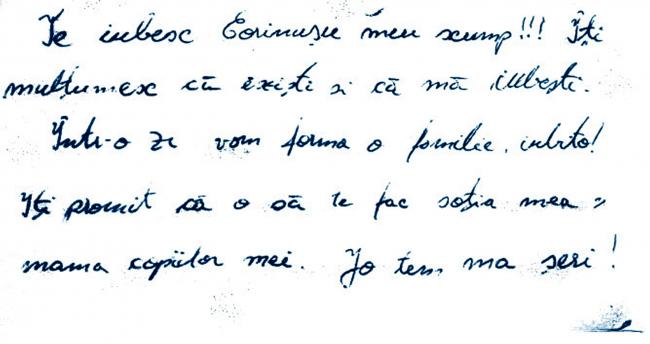 Te iubesc Corinușu meu scump!!! Îți
mulțumesc că exiști si că mă iubești.
Într-o zi vom forma o familie, iubito!
Iți promit că o să te fac soția mea,
mama copiilor mei. Io tem ma seri!